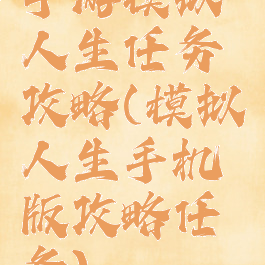 手游模拟
人生任务
攻略(模拟
人生手机
版攻略任
务)